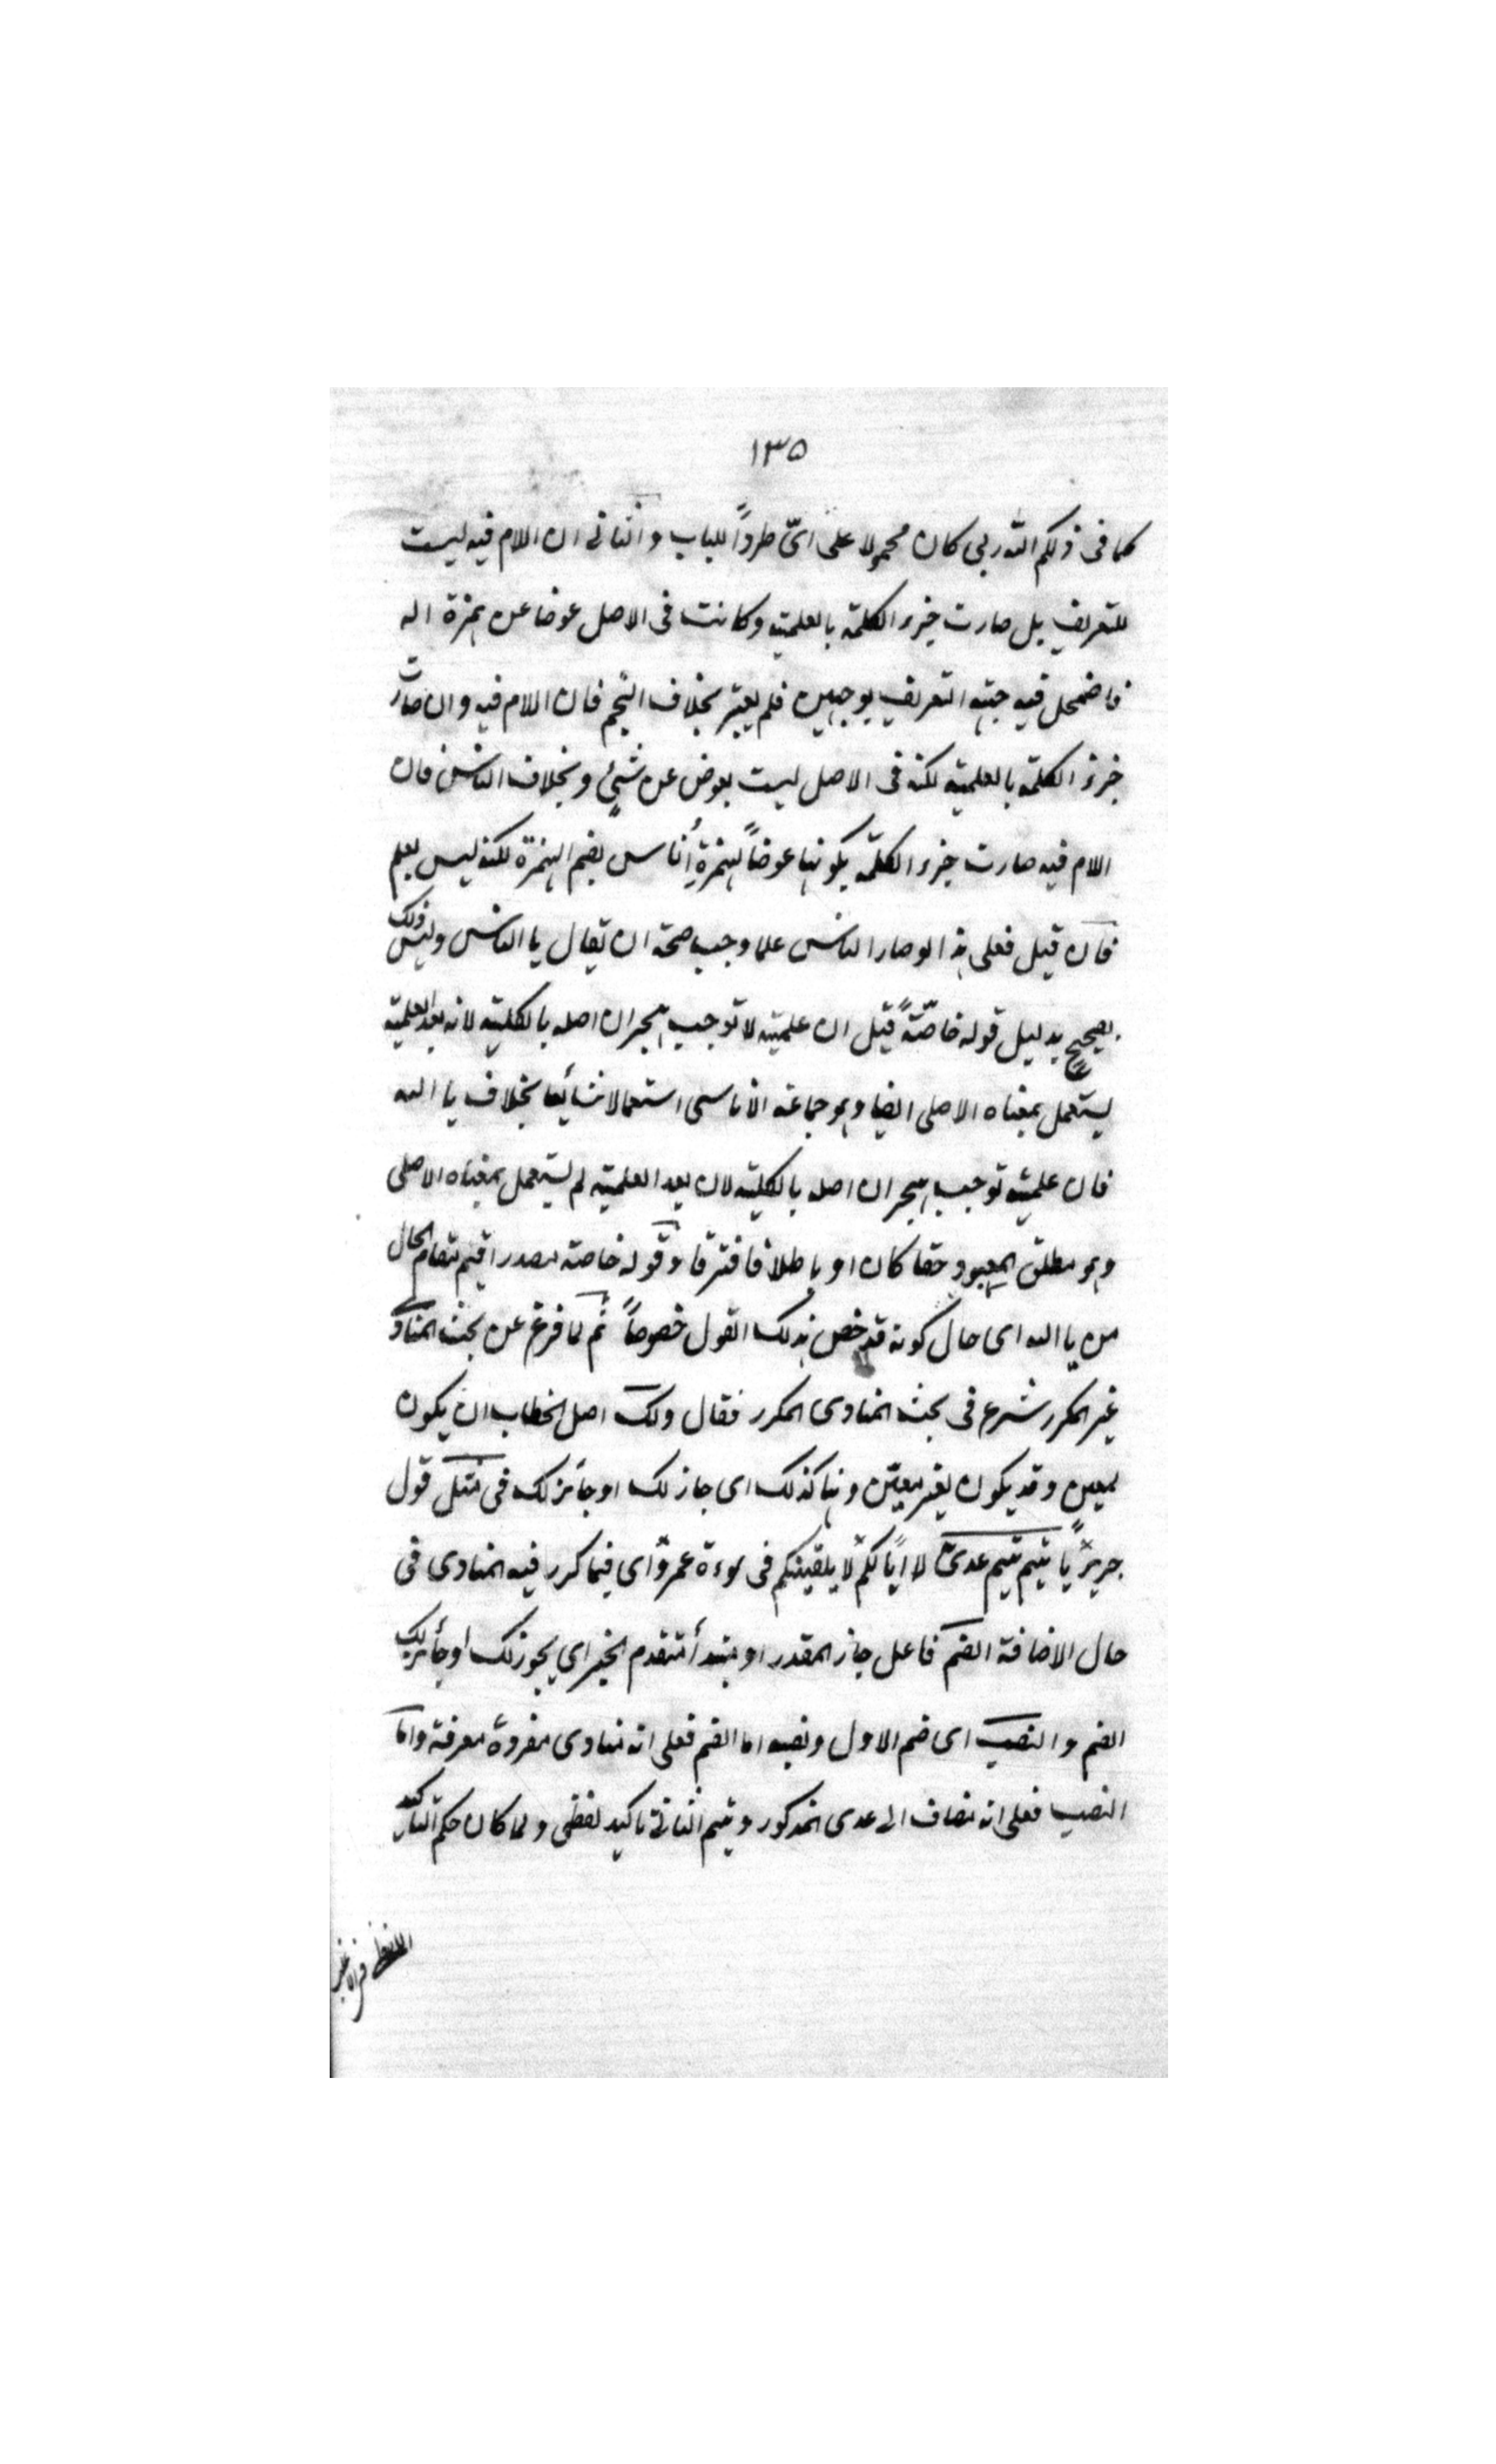 ١٣٥
كما فى ذلكم الله ربى كان محمولا على اىّ طرداً للباب والثانى ان اللام فيه ليست
للتعريف بل صارت جزء الكلمة بالعلمية وكانت فى الاصل عوضا عن همزة اله
فاضمحل فيه جهة التعريف بوجهين فلم يعتبر بخلاف النجم فان اللام فيه وان صارت
جزء الكلمة بالعلمية لكنه فى الاصل ليست بعوض عن شئ وبخلاف الناس فان
اللام فيه صارت جزء الكلمة بكونها عوضاً لهمزة أُناس بضم الهمزة لكنه ليس بعلم
فان قيل فعلى هذا لو صار الناس علما وجب صحة ان يقال يا الناس وليس ذلك
بصحيح بدليل قوله خاصّةً قيل ان علميته لا توجب هجران اصله بالكلية لانه بعد العلمية
يستعمل بمعناه الاصلى ايضا وهو جماعة الاناسى استعمالا شائعا بخلاف يا الله
فان علميته توجب هجران اصله بالكلية لان بعد العلمية لم يستعمل بمعناه الاصلى
وهو مطلق المعبود حقا كان او باطلا فافترقا وقوله خاصة مصدر اقيم مقام الحال
من يا الله اى حال كونه قد خص بذلك القول خصوصاً ثم لما فرغ عن بحث المنادى
غير المكرر شرع فى بحث المنادى المكرر فقال ولك اصل الخطاب ان يكون
لمعين وقد يكون لغير معيّن وهنا كذلك اى جاز لك او جائز لك فى مثل قول
جرير يا تيم تيم عدىّ لا ابا لكم لا يلقينكم فى سوءة عمرو اى فيما كرر فيه المنادى فى
حال الاضافة الضم فاعل جاز المقدر او مبتدأ متقدم الخبر اي يجوز لك او جائز لك
الضم والنصب اى ضم الاول ونصبه اما الضم فعلى انه منادى مفردة معرفة واما
النصب فعلى انه مضاف الى عدى المذكور وتيم الثانى تاكيد لفظى ولما كان حكم التاكيد
اللفظى